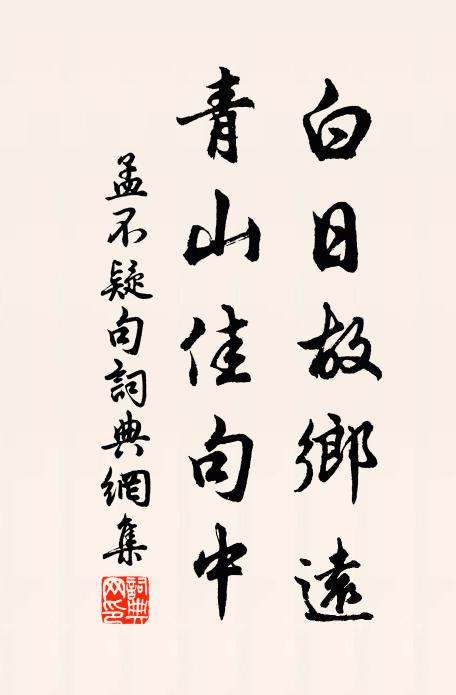 白日故鄉遠
青山佳句中
孟不疑句詞典網集
詞典网印